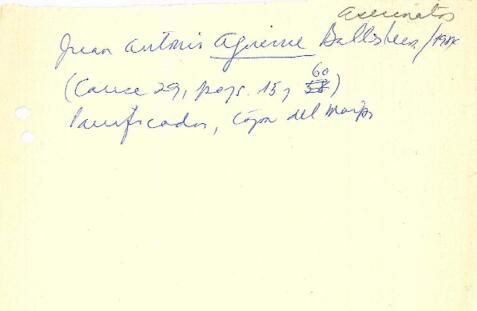 asesinatos
Juan Antonio Aguirre Ballesteros / 1984
(Cauce 29, pags. 15 y 60)
Panificador, Cajon del Maipo